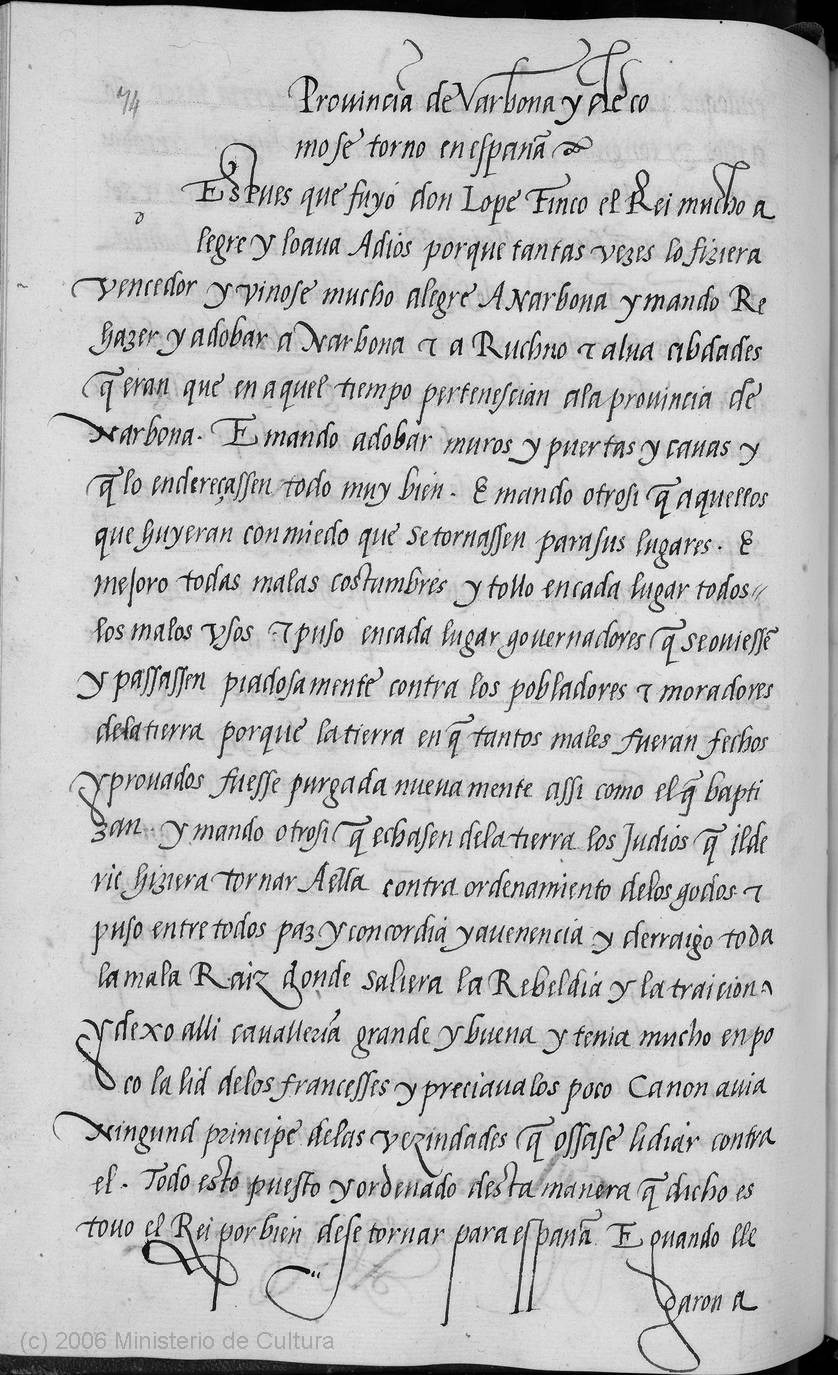 74
Prouincia de Narbona y de co
mo se torno en españa
Espues que fuyó don Lope Finco el Rei mucho a
legre y loaua Adios porque tantas vezes lo fiziera
vencedor y vinose mucho alegre A Narbona y mando Re
hazer y adobar a Narbona τ a Ruchno τ alua cibdades
q̃ eran que en aquel tiempo pertenesçian ala prouincia de
Narbona. E mando adobar muros y puertas y cauas y
q̃ lo endereçassen todo muy bien. E mando otrosi q̃ aquellos
que huyeran con miedo que se tornassen para sus lugares. E
mejoro todas malas costumbres y tollo en cada lugar todos
los malos vsos τ puso en cada lugar gouernadores q̃ se ouiessẽ
y passassen piadosamente contra los pobladores τ moradores
dela tierra porque la tierra en q̃ tantos males fueran fechos
y prouados fuesse purgada nueua mente assi como el q̃ bapti
zan. y mando otrosi q̃ echasen dela tierra los Judios q̃ ilde
ric hiziera tornar Aella contra ordenamiento delos godos τ
puso entre todos paz y concordia y auenencia y derraigo toda
la mala Raiz donde saliera la Rebeldia y la traicion
y dexo alli cauallería grande y buena y tenia mucho en po
co la lid delos francesses y preciaualos poco Ca non auia
Ningund principe delas vezindades q̃ ossase lidiar contra
el. Todo esto puesto y ordenado desta manera q̃ dicho es
touo el Rei por bien dese tornar para españa E quando lle
garon a
(c) 2006 Ministerio de Cultura